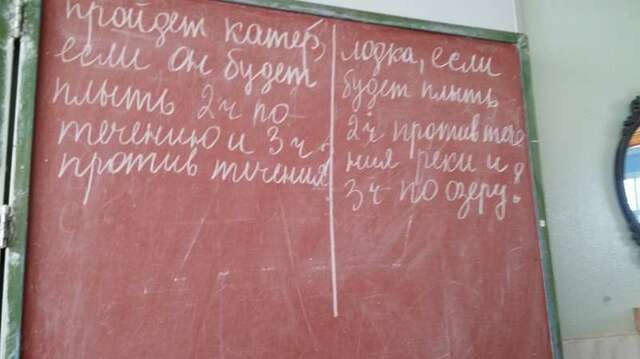 пройдет катер,
если он будет
плыть 2 ч по
течению и 3 ч
против течения?
лодка, если
будет плыть
2 ч против тече
ния реки и
3 ч по озеру?